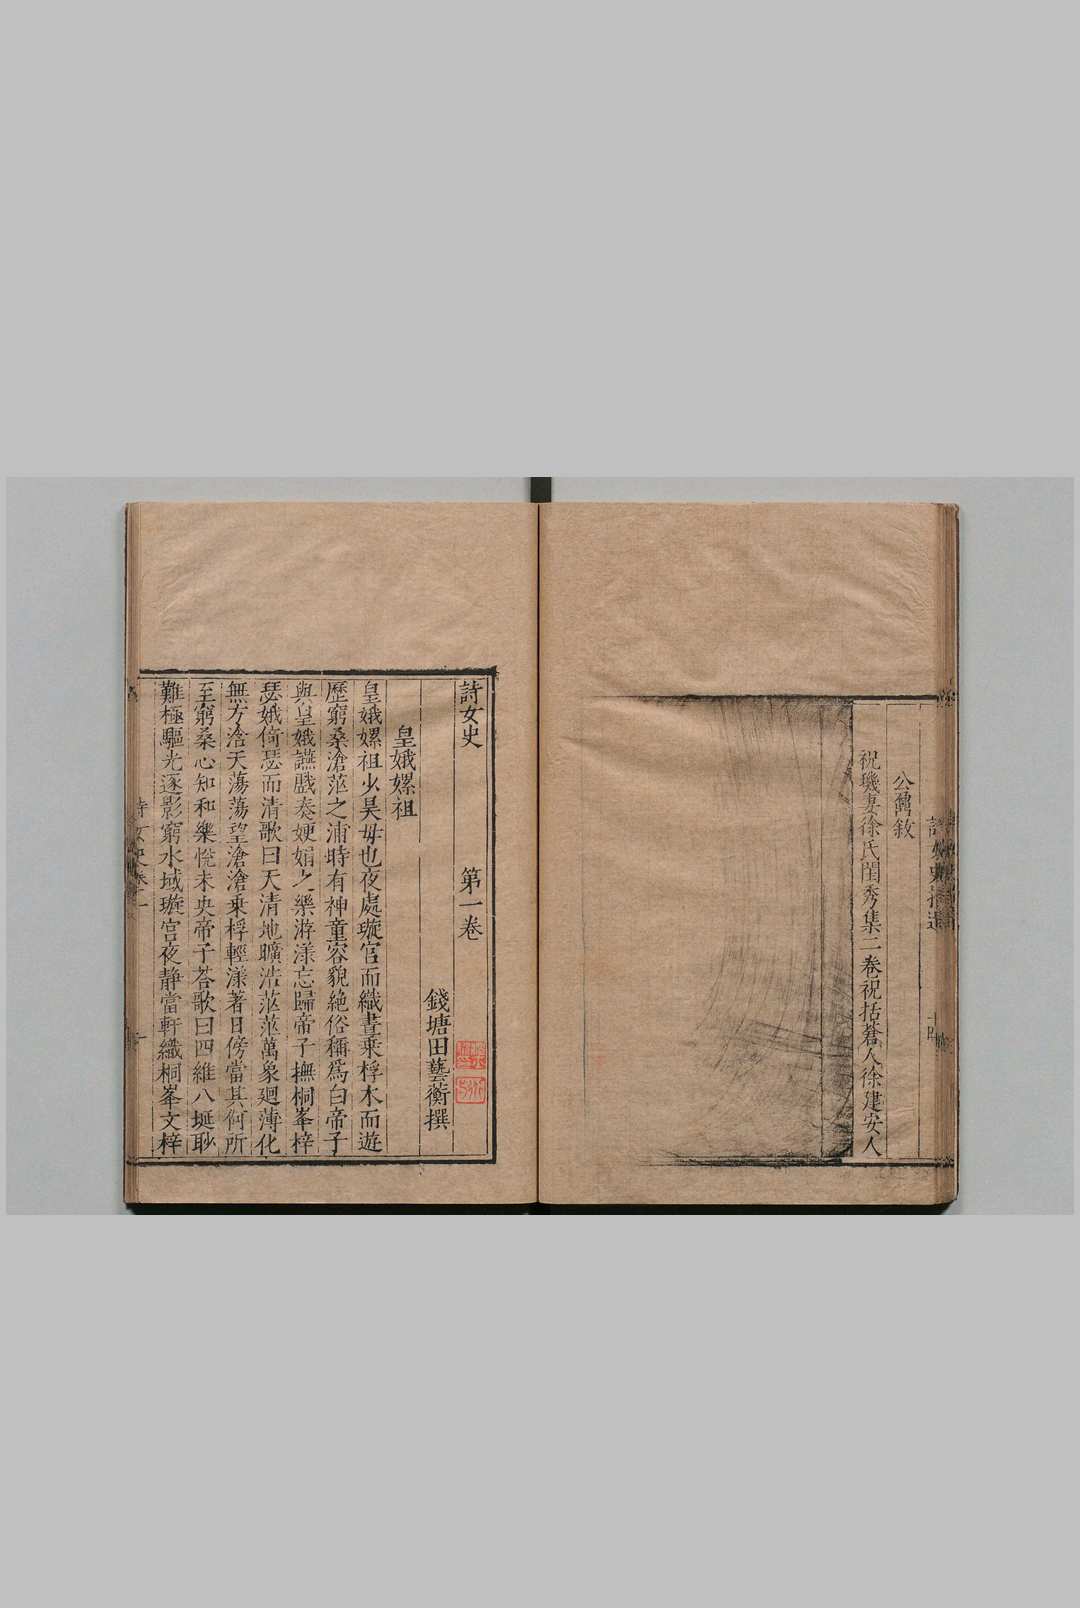 公爲敘
祝璣妻徐氏閨秀集二卷祝括蒼人徐建安人
詩女史 第一卷
錢塘田藝蘅撰
皇娥嫘祖
皇娥嫘祖少昊母也夜處璇宮而織晝乗桴木而遊
歷窮桑滄茫之浦時有神童容貌絶俗稱爲白帝子
與皇娥讌戲奏㛹娟之樂游漾忘歸帝子撫桐峯梓
瑟娥倚瑟而清歌曰天清地曠浩茫茫萬象廻薄化
無方浛天蕩蕩望滄滄乗桴輕漾著日傍當其何所
至窮桑心知和樂悅未央帝子荅歌曰四維八埏眇
難極驅光逐影窮水域璇宮夜靜當軒織桐峯文梓
詩女史卷一